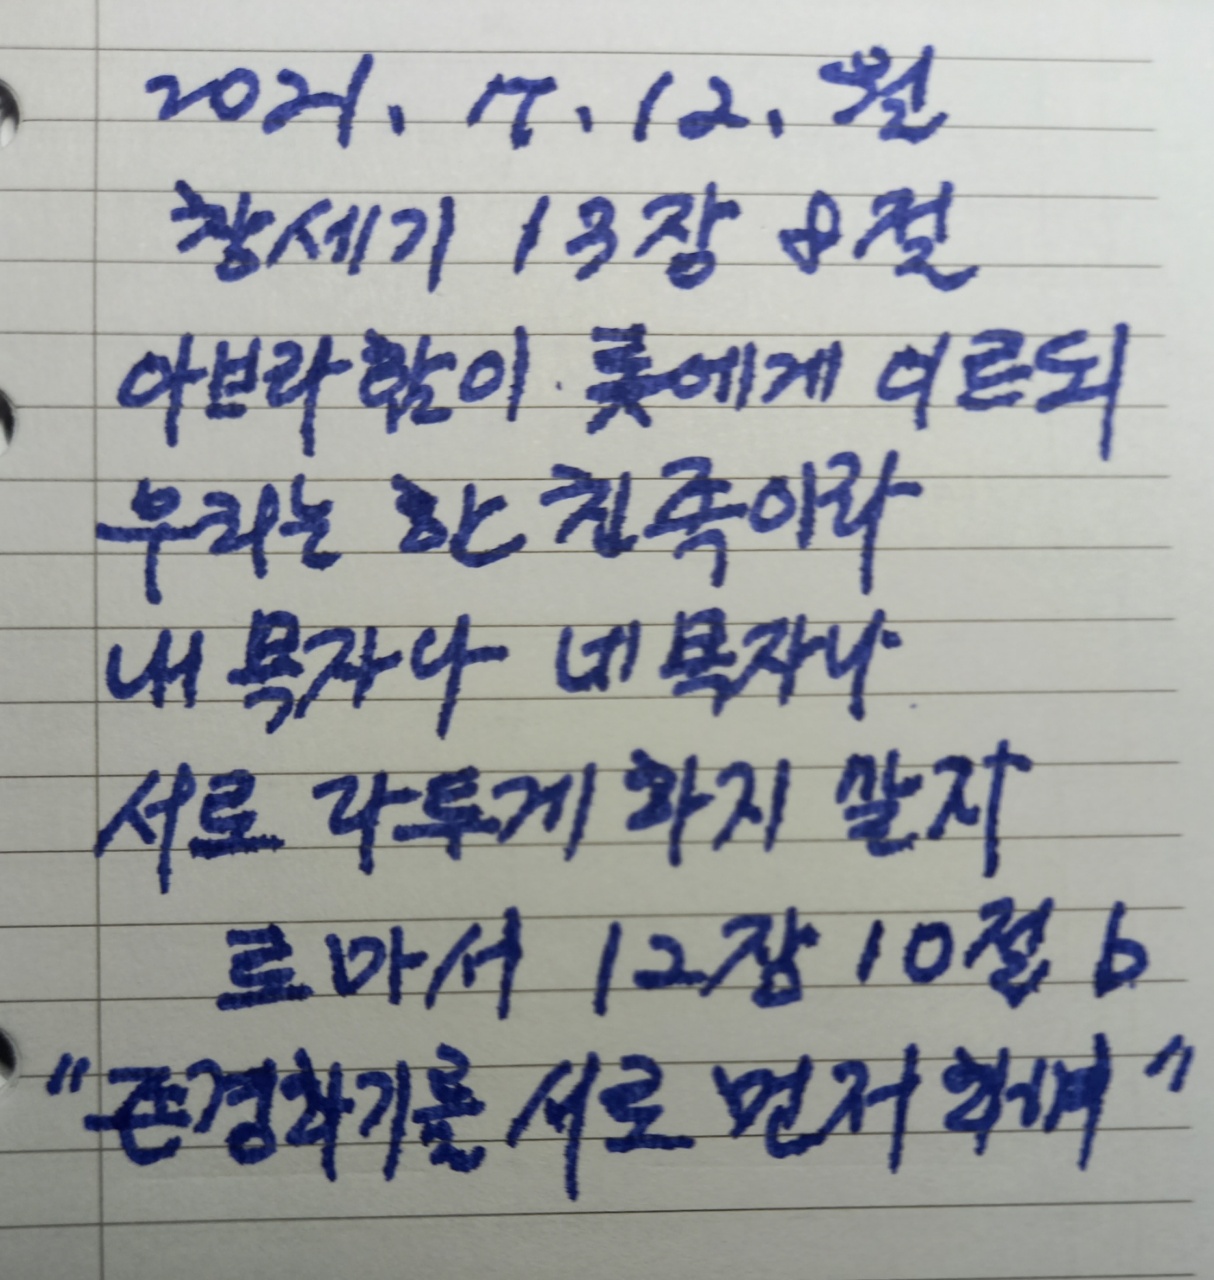 2021. 7. 12. 월
창세기 13장 8절
아브라함이 롯에게 이르되
우리는 한 친족이라
내 목자나 네 목자나
서로 다투게 하지 말자
로마서 12장 10절 b
"존경하기를 서로 먼저 하며"